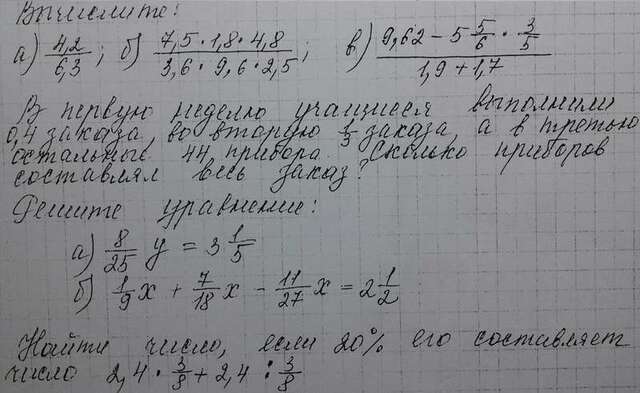 Вычислите:
а) 4,2/6,3; б) 7,5·1,8·4,8/3,6·9,6·2,5; в) 9,62 − 5 5/6 · 3/5/1,9+1,7
В первую неделю учащиеся выполнили
0,4 заказа, во вторую 1/3 заказа, а в третью
остальные 44 прибора. Сколько приборов
составлял весь заказ?
Решите уравнение:
а) 8/25 y = 3 1/5
б) 1/9 x + 7/18 x − 11/27 x = 2 1/2
Найти число, если 20% его составляет
число 2,4 · 3/8 + 2,4 : 3/8